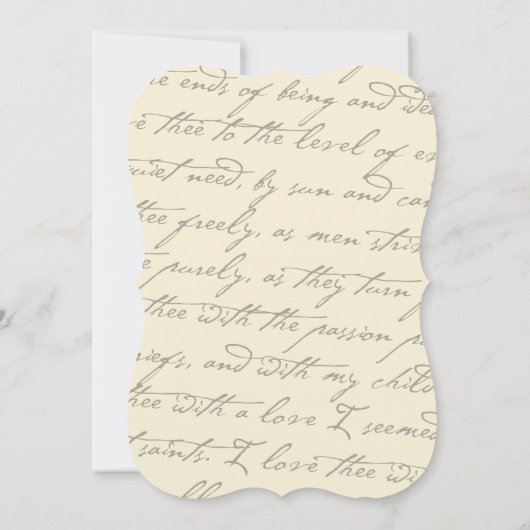 e ends of being and idea
e thee to the level of ev
uiet need, by sun and can
hee freely, as men striv
e purely, as they turn f
thee with the passion p
riefs, and with my child
hee with a love I seemed
t saints. I love thee wi